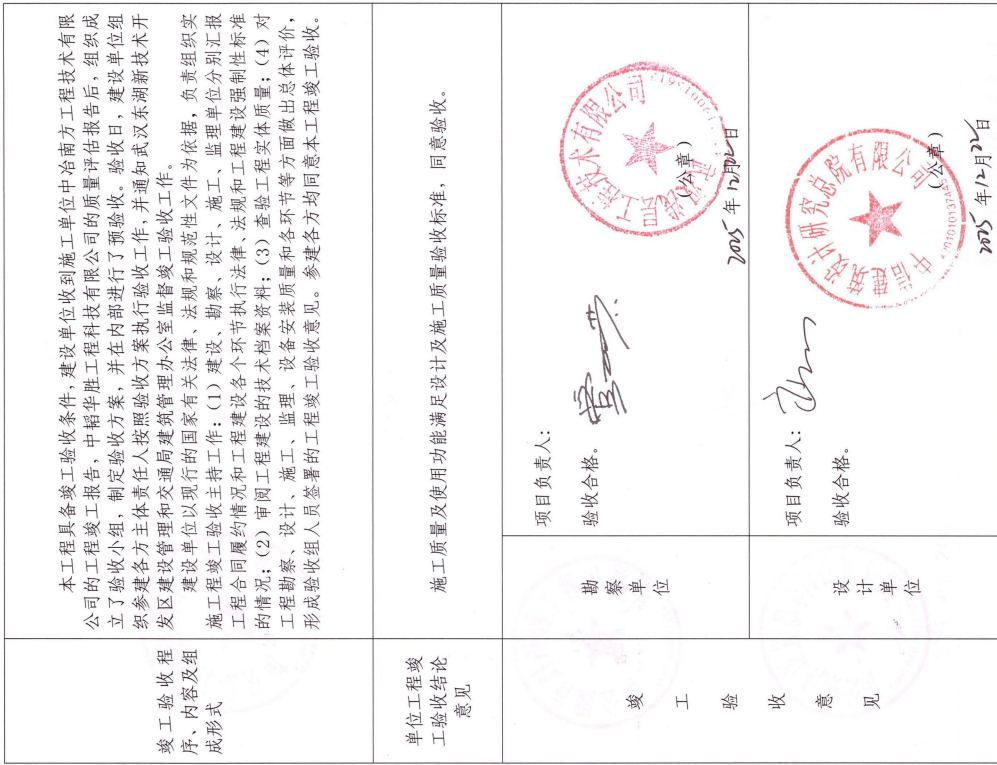 竣工验收程
序、内容及组
成形式
本工程具备竣工验收条件，建设单位收到施工单位中冶南方工程技术有限
公司的工程竣工报告，中韬华胜工程科技有限公司的质量评估报告后，组织成
立了验收小组，制定验收方案，并在内部进行了预验收。验收日，建设单位组
织参建各方主体责任人按照验收方案执行验收工作，并通知武汉东湖新技术开
发区建设管理和交通局建筑管理办公室监督竣工验收工作。
建设单位以现行的国家有关法律、法规和规范性文件为依据，负责组织实
施工程竣工验收主持工作：（1）建设、勘察、设计、施工、监理单位分别汇报
工程合同履约情况和工程建设各个环节执行法律、法规和工程建设强制性标准
的情况；（2）审阅工程建设的技术档案资料；（3）查验工程实体质量；（4）对
工程勘察、设计、施工、监理、设备安装质量和各环节等方面做出总体评价，
形成验收组人员签署的工程竣工验收意见。参建各方均同意本工程竣工验收。
单位工程竣
工验收结论
意见
施工质量及使用功能满足设计及施工质量验收标准，同意验收。
竣工验收意见
勘察单位
项目负责人：
验收合格。
工程技术有限公司
（公章）
2025年12月22日
设计单位
项目负责人：
验收合格。
中信建筑设计研究总院有限公司
（公章）
2025年12月22日